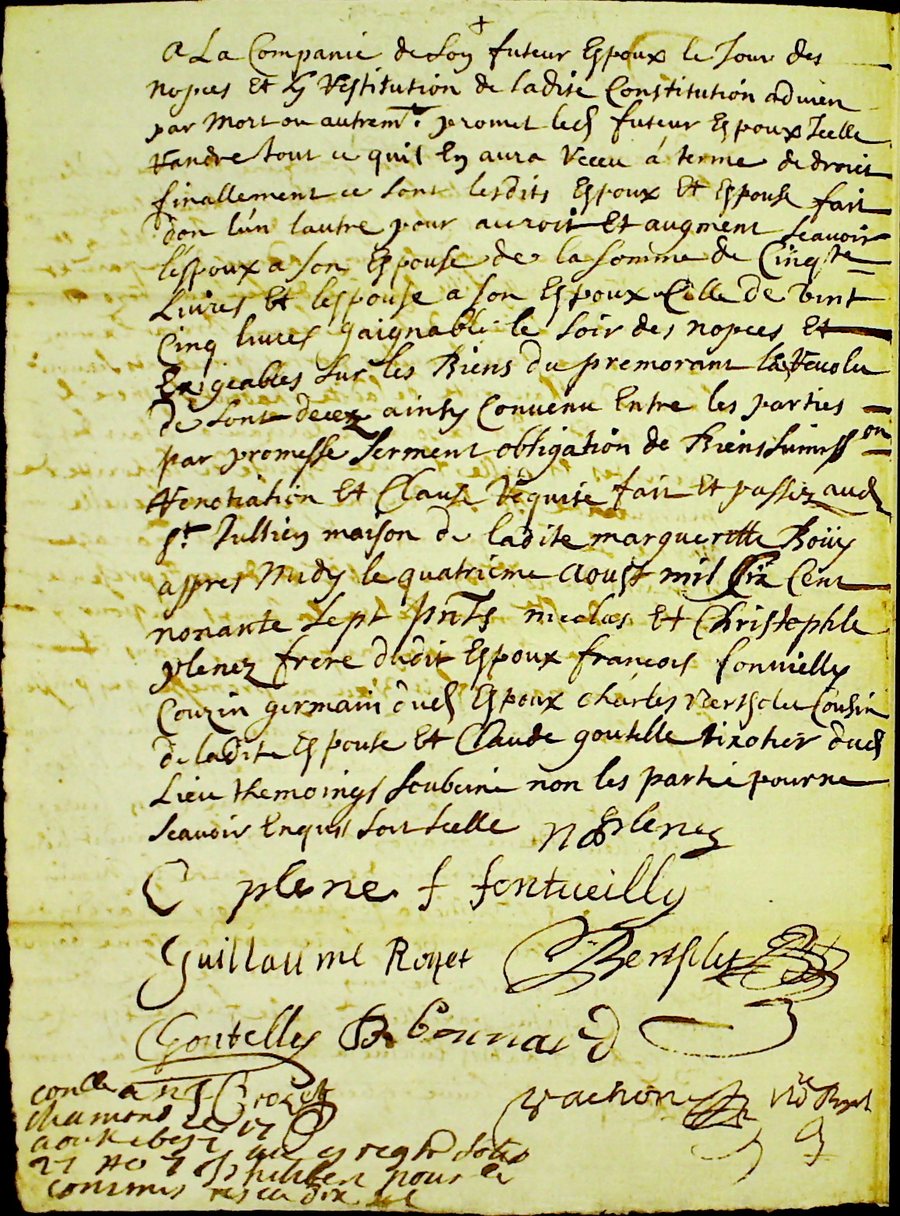 +
A La Companie de son futeur Espoux le Jour des
nopces Et sy Restitution de ladite Constitution advien
par Mort ou autremt. promet led futeur Espoux Icelle
Randre tout ce quil En aura Receu á terme de droict
finallement ce sont lesdits Espoux Et Espouse fait
don lún lautre pour accroit Et augment scavoir
léspoux a son Espouse de la somme de Cinqte
Livres Et lespouse a son Espoux Celle de vint
Cinq livres gaignable le soir des nopces Et
Exigeables sur les Biens du premorant la Revolu
de sont decez ainsy Convenu Entre les parties
par promesse serment obligation de Biens submisson
Renotiation Et Clause Requise fait Et passez aud
St Jullien maison de ladite margueritte Boüy
appres Midy le quatrieme Aoust mil Six Cent
nonante sept pnts nicolas Et Christophle
plenez frere dudit Espoux francois
Couzin germain dud Espoux charles Bertholet Cousin
de ladite Espouse Et Claude goutelle dud
Lieu themoings soubsinè non les partie pour ne
scavoir Enquis sont Icelle N plenez
C plene f fontveilly
Guillaume Royet Berthollet
Goutelle B bonnard
vachon Nre Royal
conlle a st Crozet
chamond
aoust 17
27
commis reseu dix